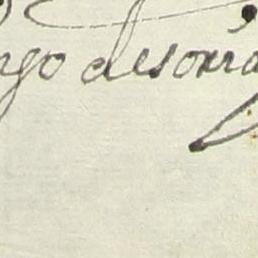 ngo desoria